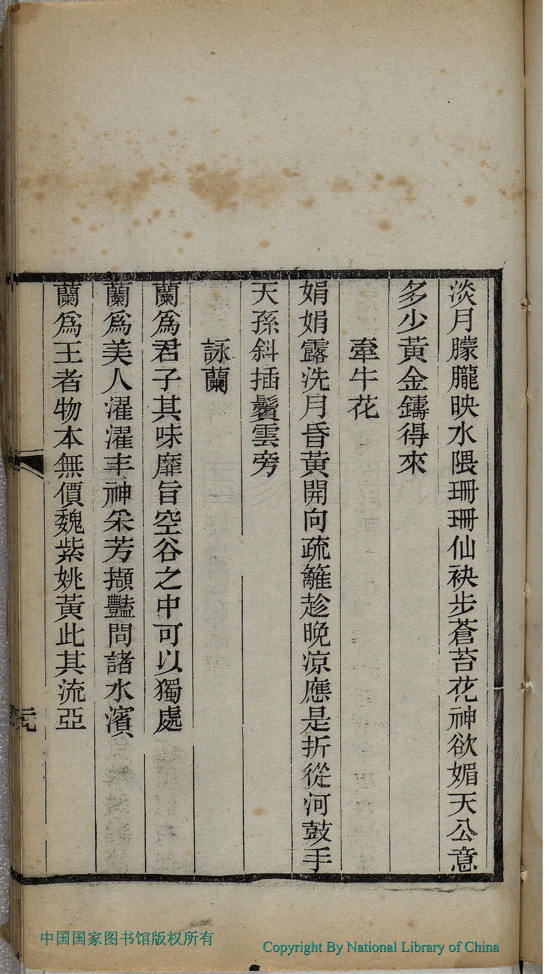 淡月朦朧映水隈珊珊仙袂步蒼苔花神欲媚天公意
多少黃金鑄得來
牽牛花
娟娟露洗月昏黃開向疏籬趁晚凉應是折從河鼓手
天孫斜插鬢雲旁
詠蘭
蘭爲君子其味靡旨空谷之中可以獨處
蘭爲美人濯濯丰神采芳擷豔問諸水濱
蘭爲王者物本無價魏紫姚黃此其流亞
中国国家图书馆版权所有
Copyright By National Library of China